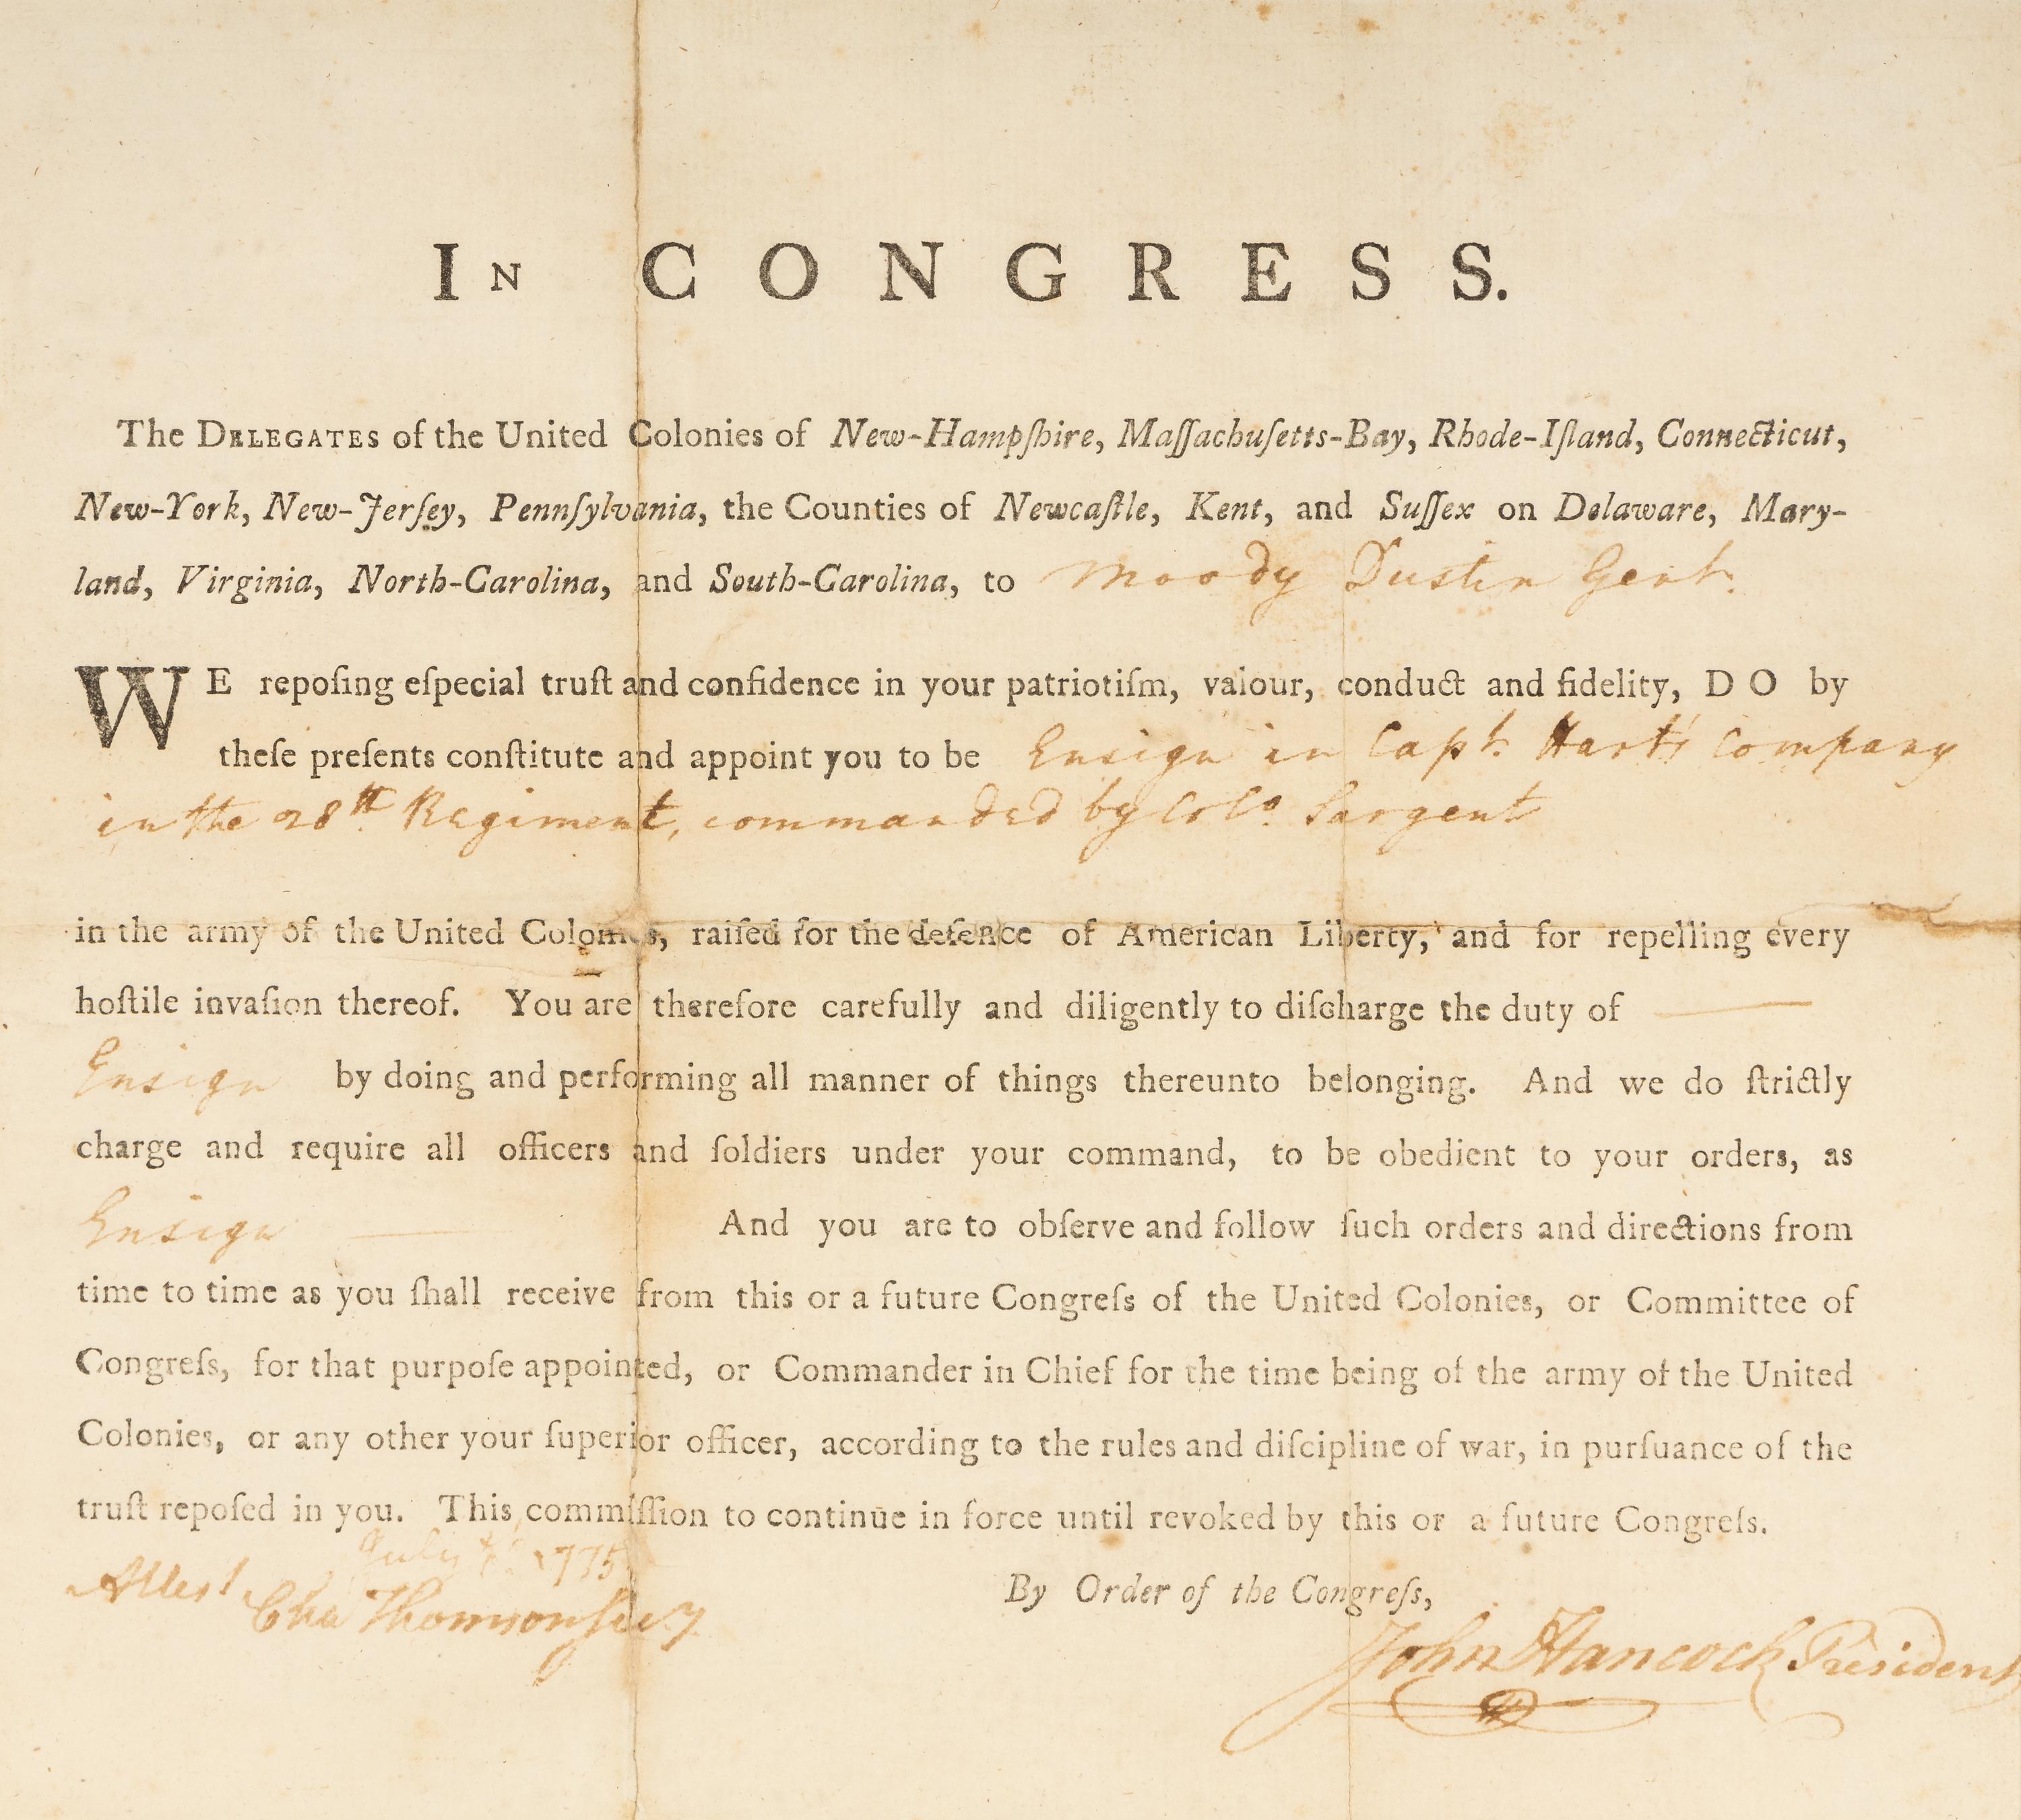 IN CONGRESS.
The DELEGATES of the United Colonies of New-Hampſhire, Maſſachuſetts-Bay, Rhode-Iſland, Connecticut,
New-York, New-Jerſey, Pennſylvania, the Counties of Newcaſtle, Kent, and Suſſex on Delaware, Mary-
land, Virginia, North-Carolina, and South-Carolina, to Moody Dustin Gent.
WE repoſing eſpecial truſt and confidence in your patriotiſm, valour, conduct and fidelity, DO by
theſe preſents conſtitute and appoint you to be Ensign in Capt. Hart's Company
in the 28th Regiment, commanded by Colo. Sargent
in the army of the United Colonies, raiſed for the defence of American Liberty, and for repelling every
hoſtile invaſion thereof. You are therefore carefully and diligently to diſcharge the duty of —
Ensign by doing and performing all manner of things thereunto belonging. And we do ſtrictly
charge and require all officers and ſoldiers under your command, to be obedient to your orders, as
Ensign — And you are to obſerve and follow ſuch orders and directions from
time to time as you ſhall receive from this or a future Congreſs of the United Colonies, or Committee of
Congreſs, for that purpoſe appointed, or Commander in Chief for the time being of the army of the United
Colonies, or any other your ſuperior officer, according to the rules and diſcipline of war, in purſuance of the
truſt repoſed in you. This commiſſion to continue in force until revoked by this or a future Congreſs.
July 1775
By Order of the Congreſs,
Attest Cha Thomson Secy
John Hancock President